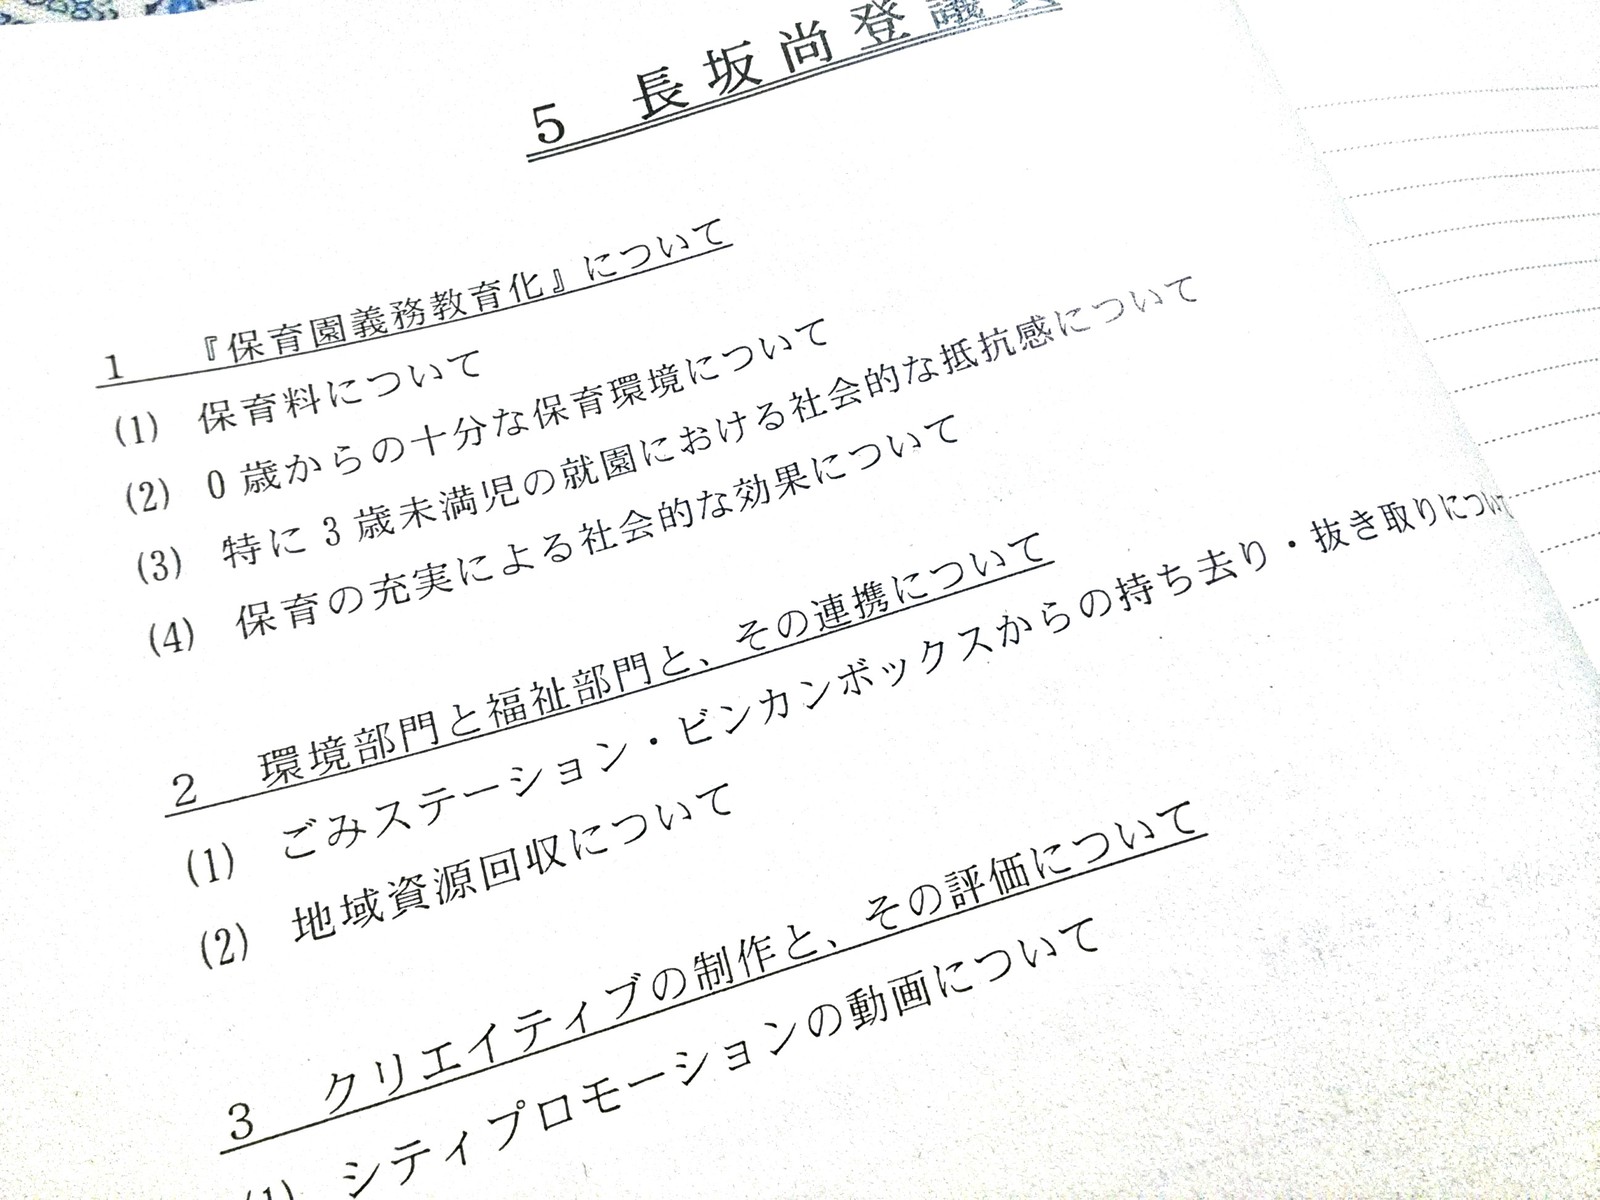 5 長坂尚登議員
1 『保育園義務教育化』について
(1) 保育料について
(2) 0歳からの十分な保育環境について
(3) 特に3歳未満児の就園における社会的な抵抗感について
(4) 保育の充実による社会的な効果について
2 環境部門と福祉部門と、その連携について
(1) ごみステーション・ビンカンボックスからの持ち去り・抜き取りについ
(2) 地域資源回収について
3 クリエイティブの制作と、その評価について
(1) シティプロモーションの動画について